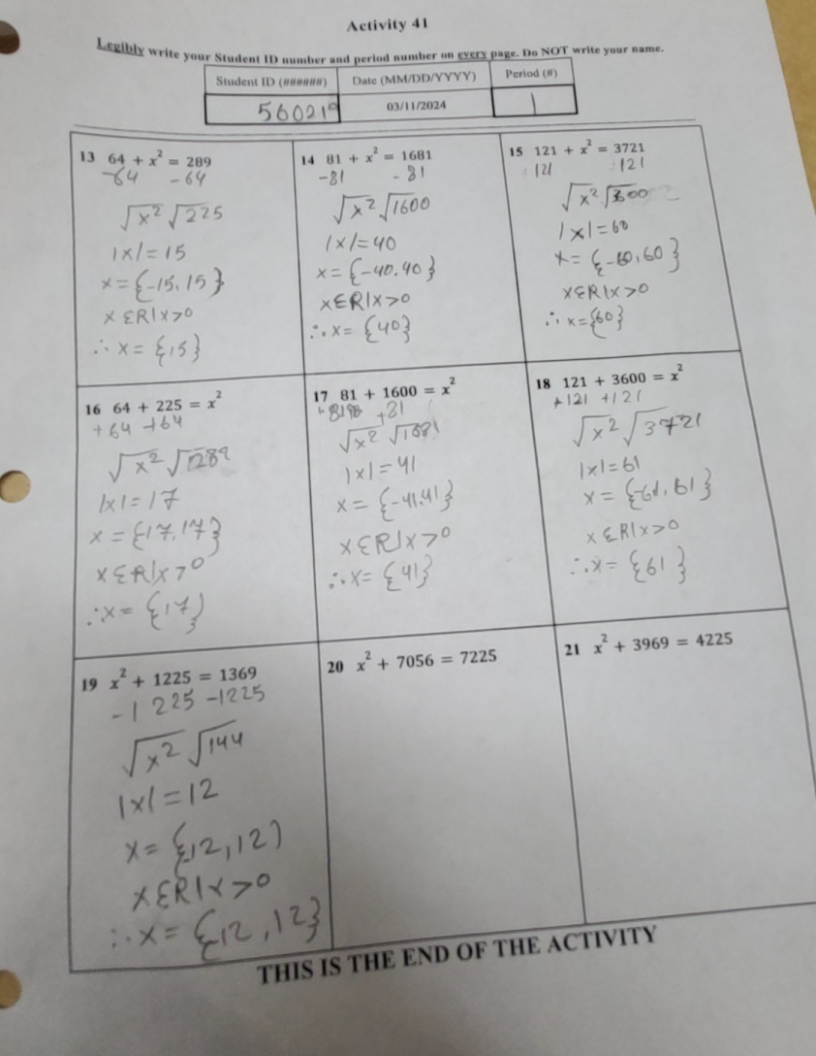 Activity 41
Legibly write your Student ID number and period number on every page. Do NOT write your name.
Student ID (######) Date (MM/DD/YYYY) Period (#)
560219 03/11/2024 1
13 64 + x² = 289
-64 -64
√x² √225
|x|=15
x={-15,15}
xεR|x>0
∴x={15}
14 81 + x² = 1681
-81 -81
√x² √1600
|x|=40
x={-40.40}
xεR|x>0
∴x={40}
15 121 + x² = 3721
121 121
√x² √3600
|x|=60
x={-60,60}
xεR|x>0
∴x={60}
16 64 + 225 = x²
+64 +64
√x² √289
|x|=17
x={17,17}
xεR|x>0
∴x={17}
17 81 + 1600 = x²
+81
√x² √1681
|x|=41
x={-41,41}
xεR|x>0
∴x={41}
18 121 + 3600 = x²
+121 +121
√x² √3721
|x|=61
x={-61,61}
xεR|x>0
∴x={61}
19 x² + 1225 = 1369
-1225 -1225
√x² √144
|x|=12
x={-12,12)
xεR|x>0
∴x={12,12}
20 x² + 7056 = 7225
21 x² + 3969 = 4225
THIS IS THE END OF THE ACTIVITY